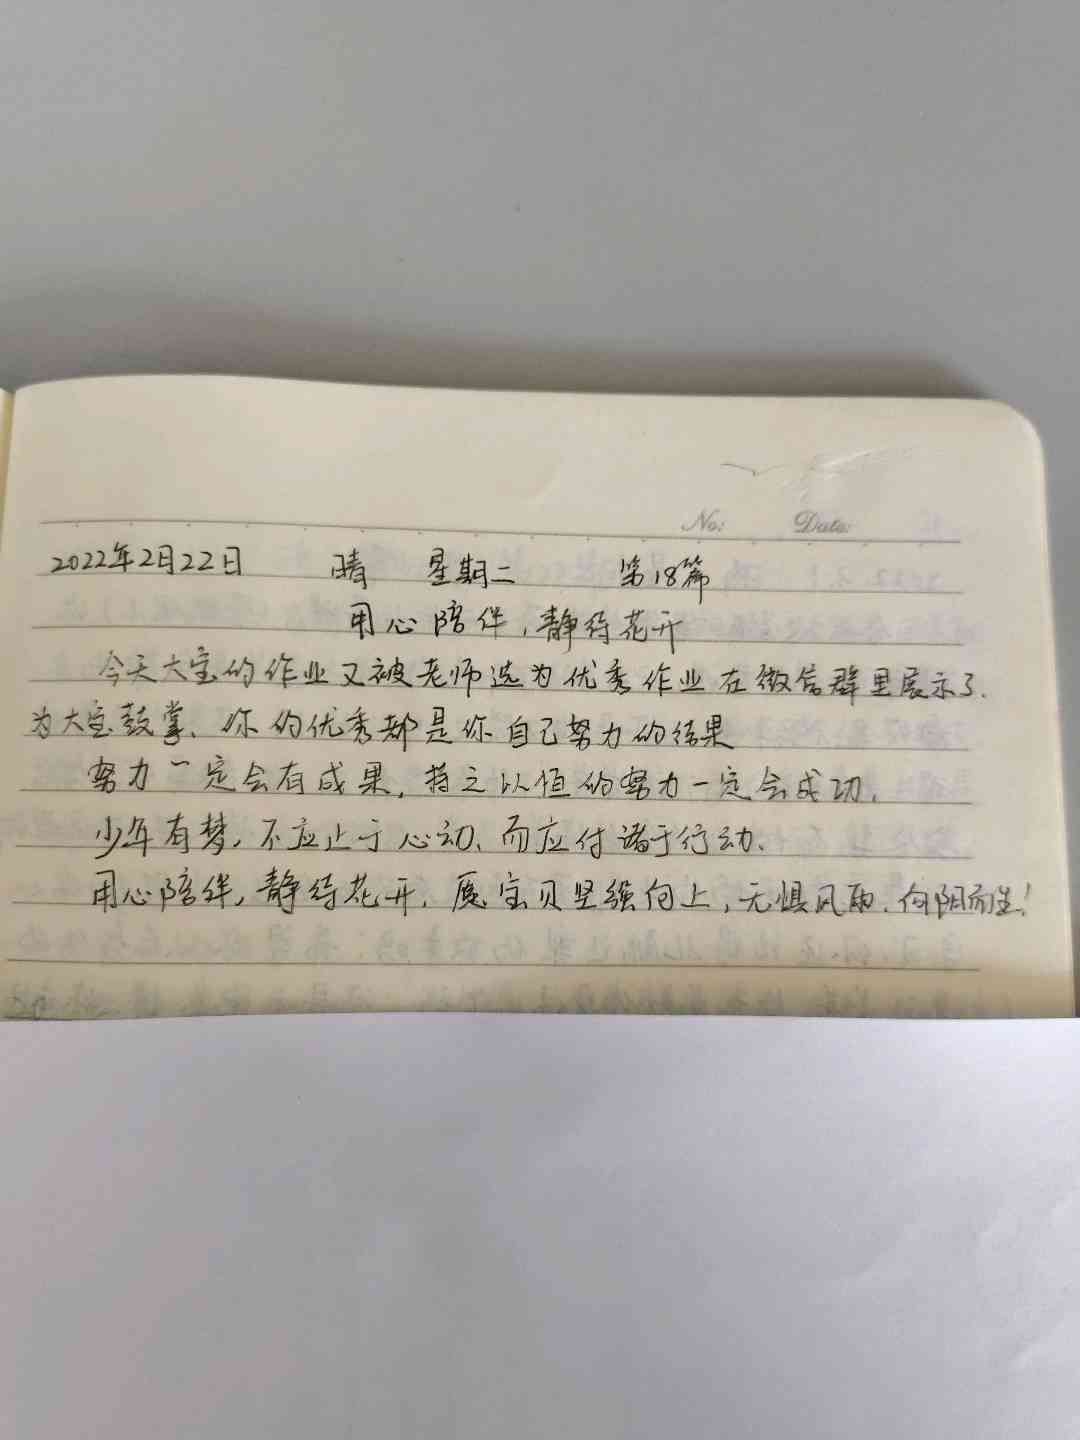 No: Date:
2022年2月22日 晴 星期二 第18篇
用心陪伴,静待花开
今天大宝的作业又被老师选为优秀作业在微信群里展示了.
为大宝鼓掌、你的优秀都是你自己努力的结果
努力一定会有成果,持之以恒的努力一定会成功.
少年有梦,不应止于心动、而应付诸于行动.
用心陪伴,静待花开,愿宝贝坚强向上,无惧风雨.向阳而生!